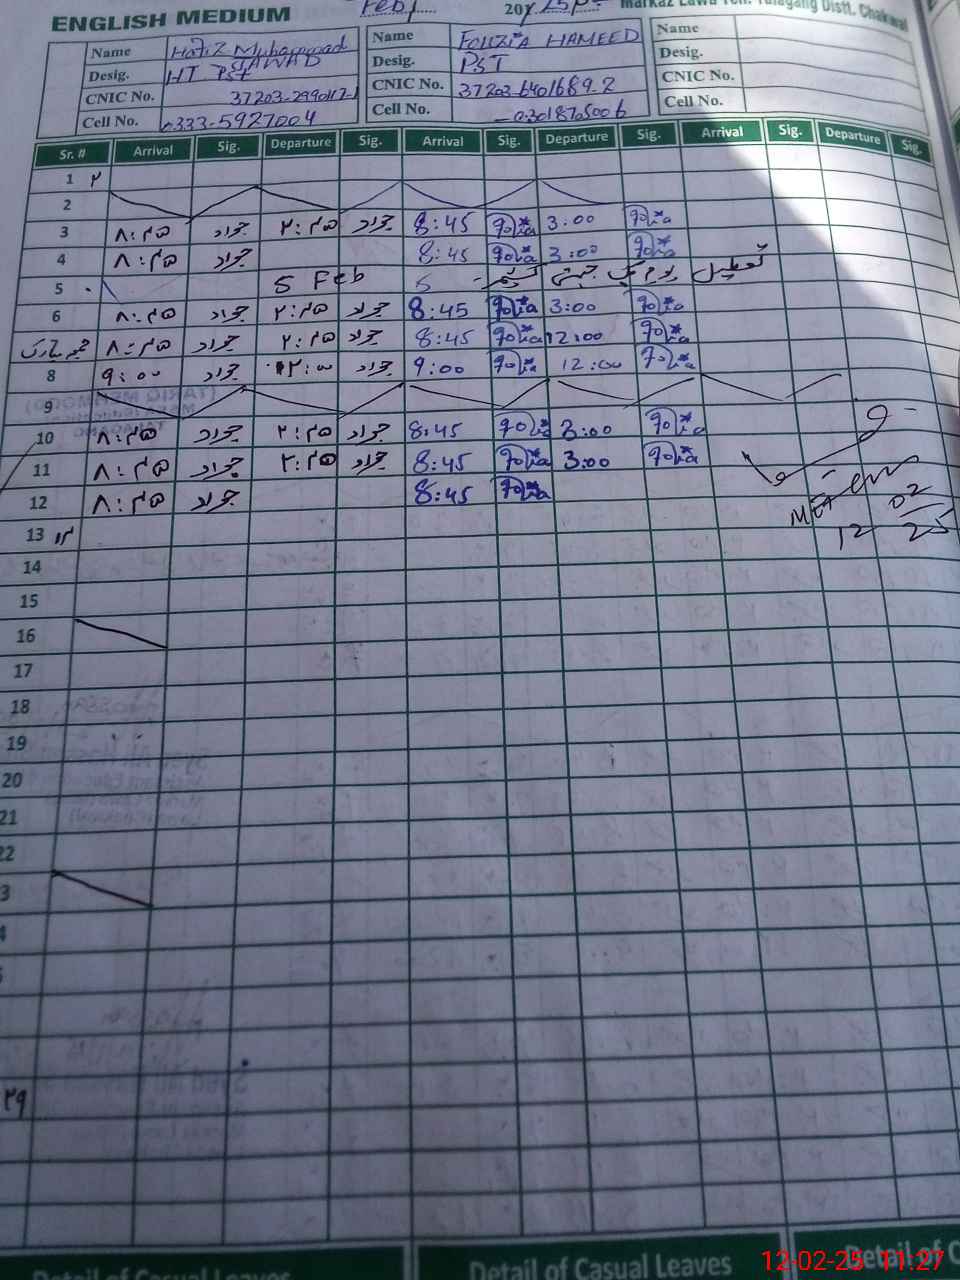 ENGLISH MEDIUM Feb/ 2025 Markaz Lawa Teh. Talagang Distt. Chakwal
Name Hafiz Muhammad JAWAD
Desig. HT PST
CNIC No.
Cell No. 0333-5927004
Name FOUZIA HAMEED
Desig. PST
CNIC No. 37203-6401689-2
Cell No. 03018705006
Name
Desig.
CNIC No.
Cell No.
Sr. # Arrival Sig. Departure Sig. Arrival Sig. Departure Sig. Arrival Sig. Departure Sig.
1 ۲
2
3 ۸:۴۵ جواد ۲:۴۵ جواد 8:45 3:00
4 ۸:۴۵ جواد 8:45 3:00
5 5 Feb 5 تعطیل یوم یک جہتی کشمیر
6 ۸:۴۵ جواد ۲:۴۵ جواد 8:45 3:00
جمعہ مبارک ۸:۴۵ جواد ۲:۴۵ جواد 8:45 12:00
8 ۹:۰۰ جواد ۱۲:۰۰ جواد 9:00 12:00
9
10 ۸:۴۵ جواد ۲:۴۵ جواد 8:45 3:00
11 ۸:۴۵ جواد ۲:۴۵ جواد 8:45 3:00
12 ۸:۴۵ جواد 8:45
12 02 25
13
14
15
16
17
18
19
20
21
22
3
4
۲۹
Detail of Casual Leaves Detail of Casual Leaves Detail of C
12-02-25 11:27